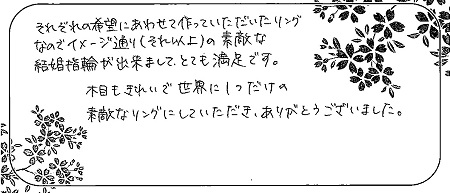 それぞれの希望にあわせて作っていただいたリング
なのでイメージ通り(それ以上)の素敵な
結婚指輪が出来まして、とても満足です。
木目もきれいで世界に1つだけの
素敵なリングにしていただき、ありがとうございました。